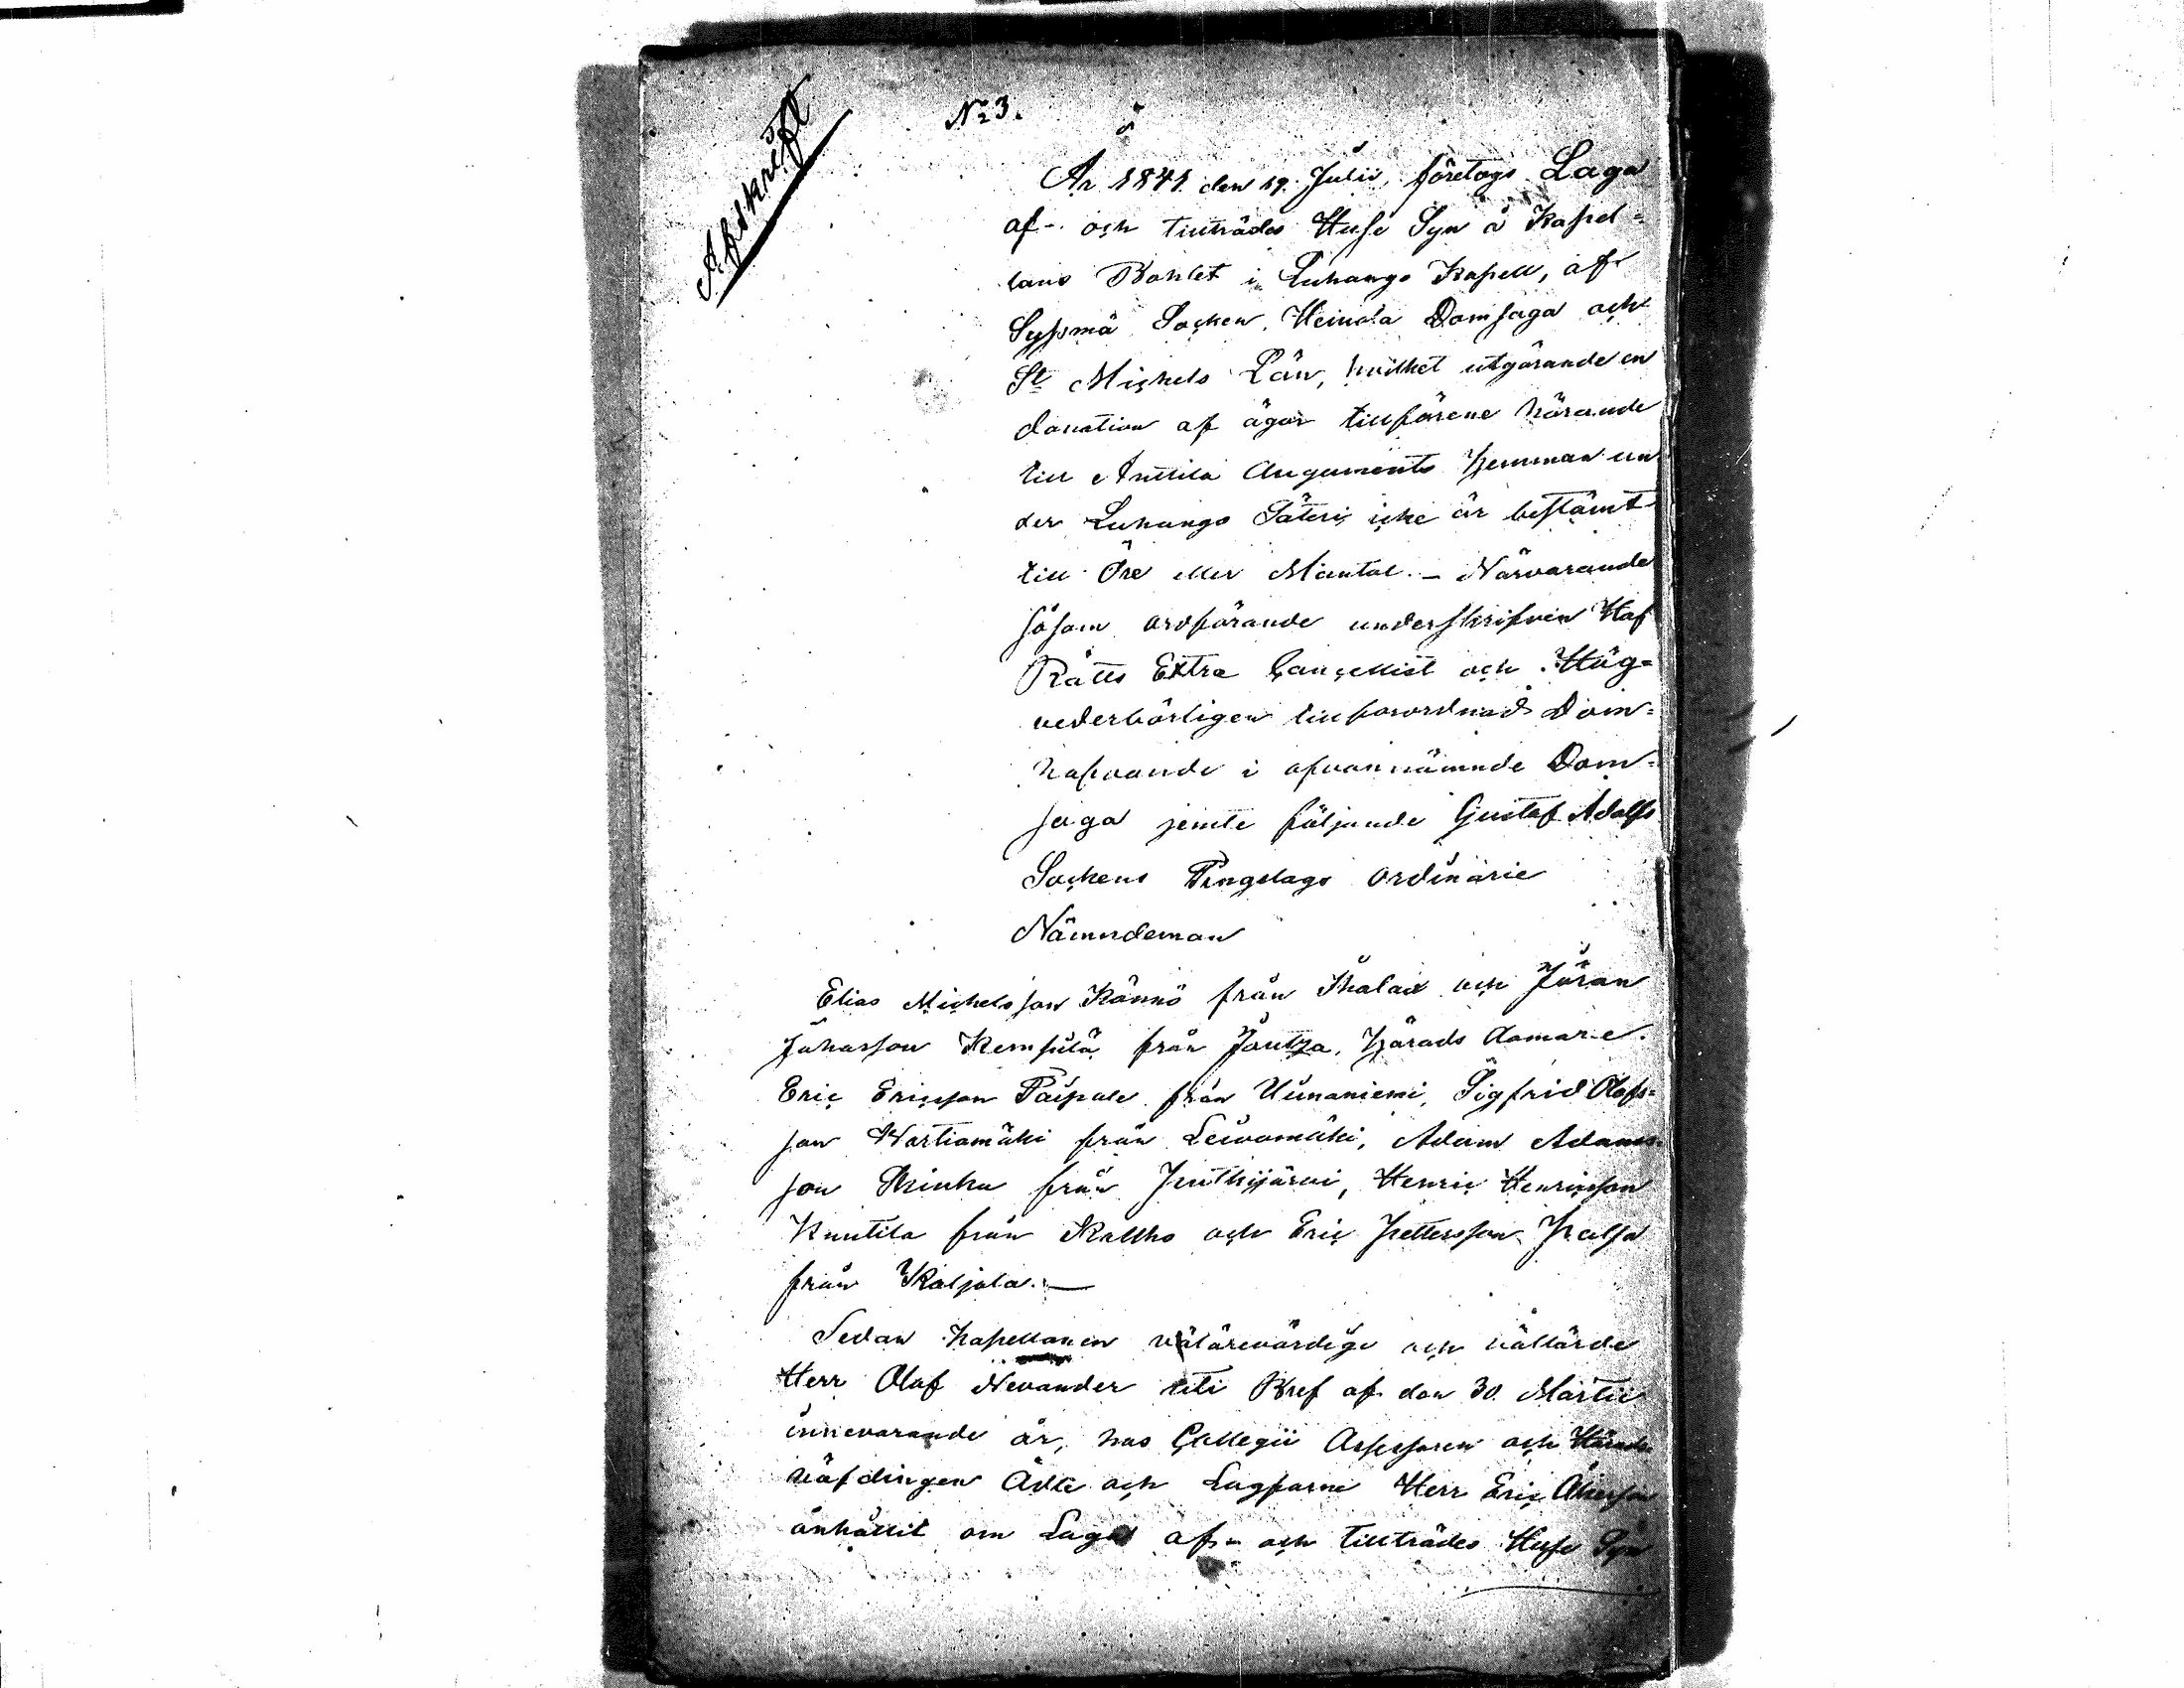 Afskrift
No 3.
År 1841 den 19 Julii, företogs Laga
af- och tillträdes Huse Syn å Kapel=
lans Bohlet i Luhango Kapell, af
Sysmä Socken, Heinola Domsaga och
St Michels Län, hvilket utgörande en
donation af ägor tillförene hörande
till Anttila Augments Hemman un
der Luhango Säteri, icke är bestämt
till Öre eller Mantal. – Närvarande
såsom ordförande underskrifven Hof
Rätts Extra Cancellist och Hög=
vederbörligen tillförordnad Dom=
hafvande i ofvannämnde Dom=
saga jemte följande Gustaf Adolfs
Sockens Tingslags ordinarie
Nämndeman
Elias Michelsson Könnö från och Jöran
Johansson Kempilä från Joutza, Härads domar-e.
Eric Ericsson Paipale från Uimaniemi, Sigfrid Olofs=
son Wartiamäki från Leivomäki, Adam Adams-
son från Jouthijärvi, Henric Henricsson
Knutila från och Eric Pettersson
från Kaljola. —
Sedan Kapellanen välärevördige och vällärde
Herr Olof Nevander uti Bref af den 30. Martii
innevarande år, hos Collegii Assessoren och Härads
höfdingen Ädle och Lagfarne Herr Eric Åkesson
anhållit om Laga af- och tillträdes Huse Syn